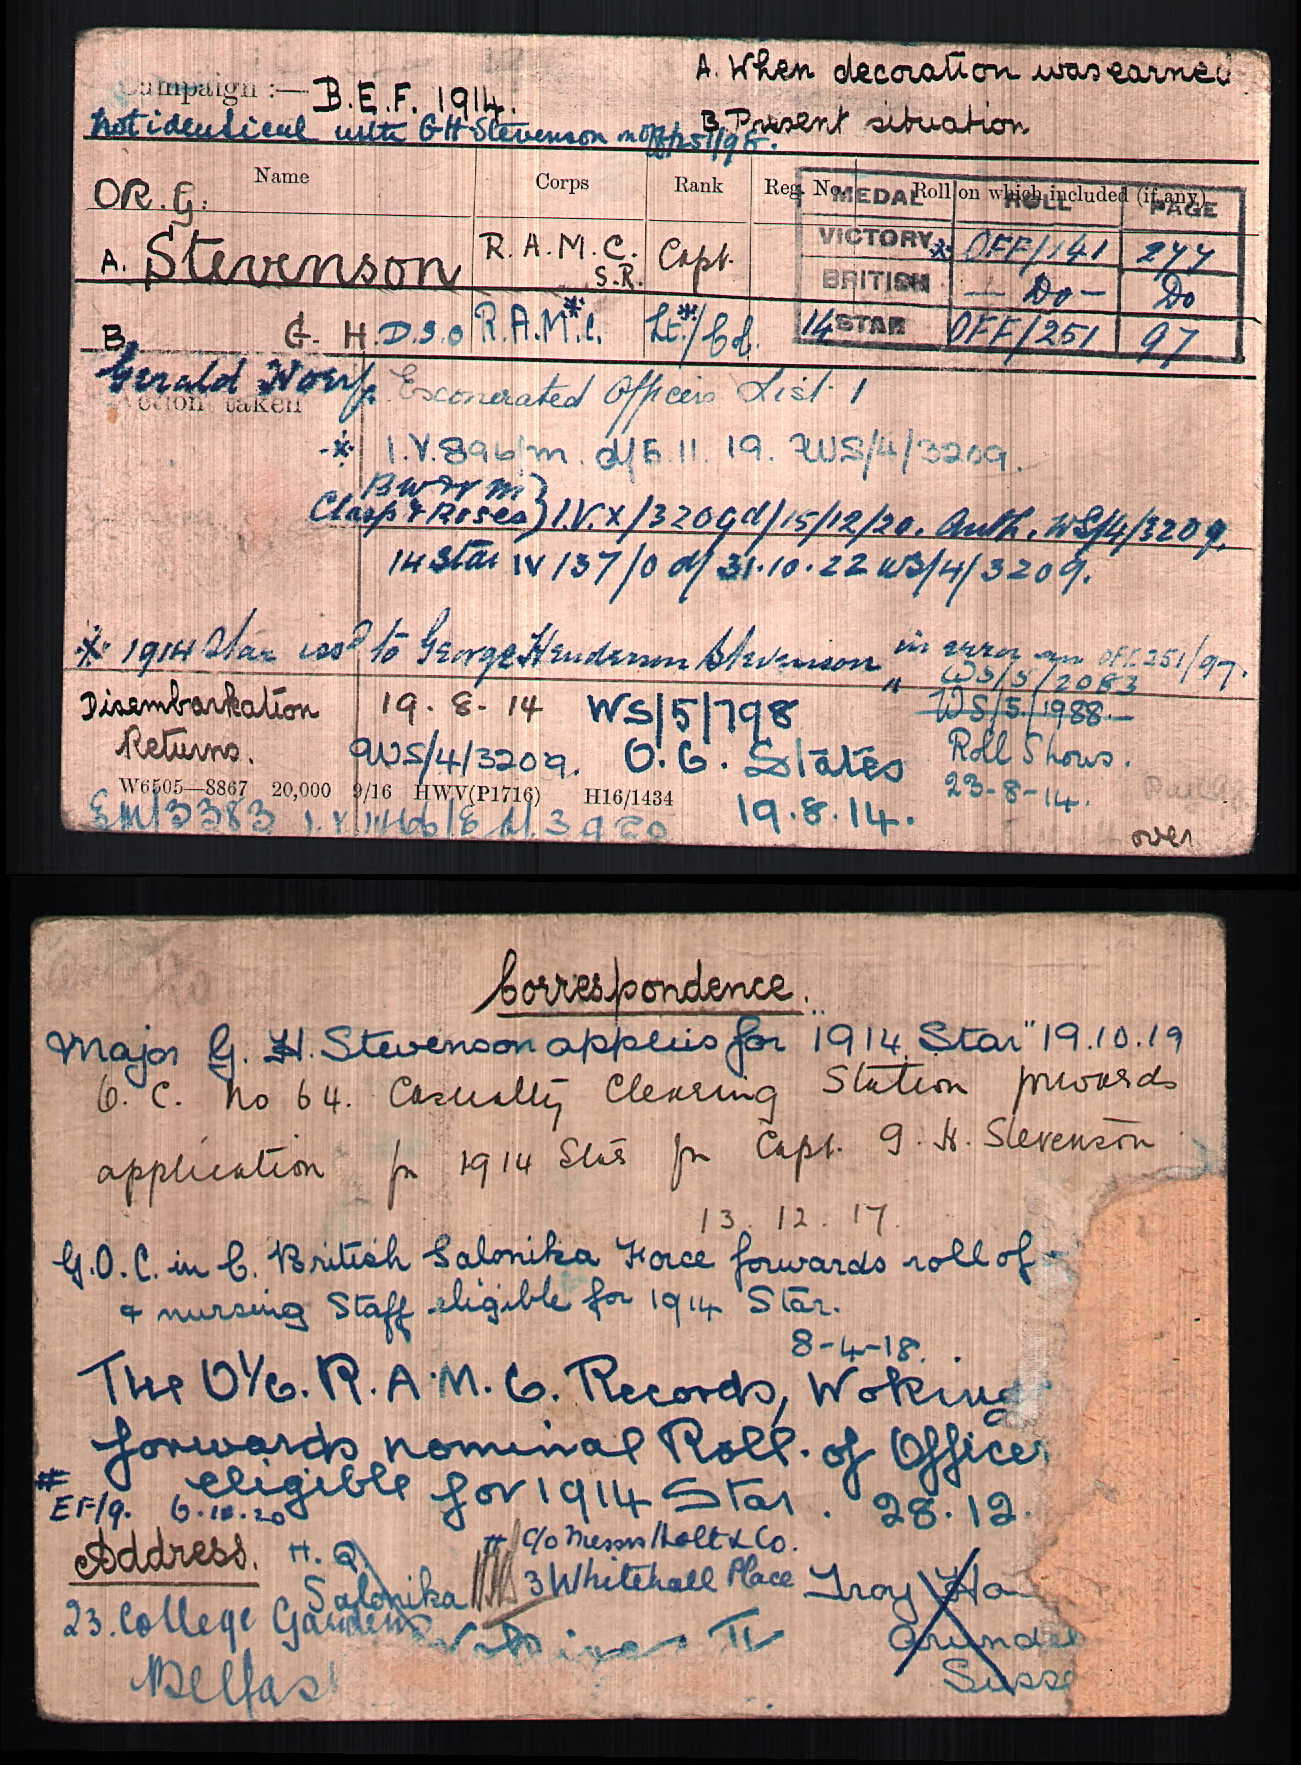 A. When decoration was earned
Campaign :— B.E.F. 1914.
B. Present situation
Not identical with G H Stevenson on OFF/251/98.
Name Corps Rank Reg. No. Roll on which included (if any)
OR. G.
MEDAL ROLL PAGE
A. Stevenson R.A.M.C. S.R. Capt.
VICTORY * OFF/141 277
BRITISH — Do — Do
B. G. H. D.S.O R.A.M.*C. Lt.*/Col.
14 STAR OFF/251 97
Gerald Exonerated Officers List 1
Action taken
* I.V. 896/m. d/5.11.19. WS/4/3209.
BW &
Clasp & Roses } I.V.X/3209 d/15/12/20. Auth. WS/4/3209.
14 Star IV/37/0 d/ 31.10.22 WS/4/3209.
* 1914 Star issd to George Henderson Stevenson in error on OFF.251/97.
" WS/5/2083
Disembarkation 19. 8. 14 WS/5/798 WS/5/1988.—
Returns. WS/4/3209. O.C. States Roll Shows.
W6505—8867 20,000 9/16 HWV(P1716) H16/1434 23-8-14.
EM/3383 19.8.14.
over
Correspondence.
Major G. H. Stevenson applies for "1914 Star" 19.10.19
O. C. No 64. Casualty Clearing Station forwards
application for 1914 Star for Capt. G. H. Stevenson
13. 12. 17.
G.O.C. in C. British Salonika Force forwards roll of
& nursing Staff eligible for 1914 Star.
8-4-18.
The O/C. R.A.M.C. Records, Woking
forwards nominal Roll of Officer
eligible for 1914 Star. 28.12.
# EF/9. 6.10.20
Address. H. Q. # c/o Messrs Holt & Co.
Salonika 3 Whitehall Place Troy Ho
23. College Gardens Arundel
Belfast Susse